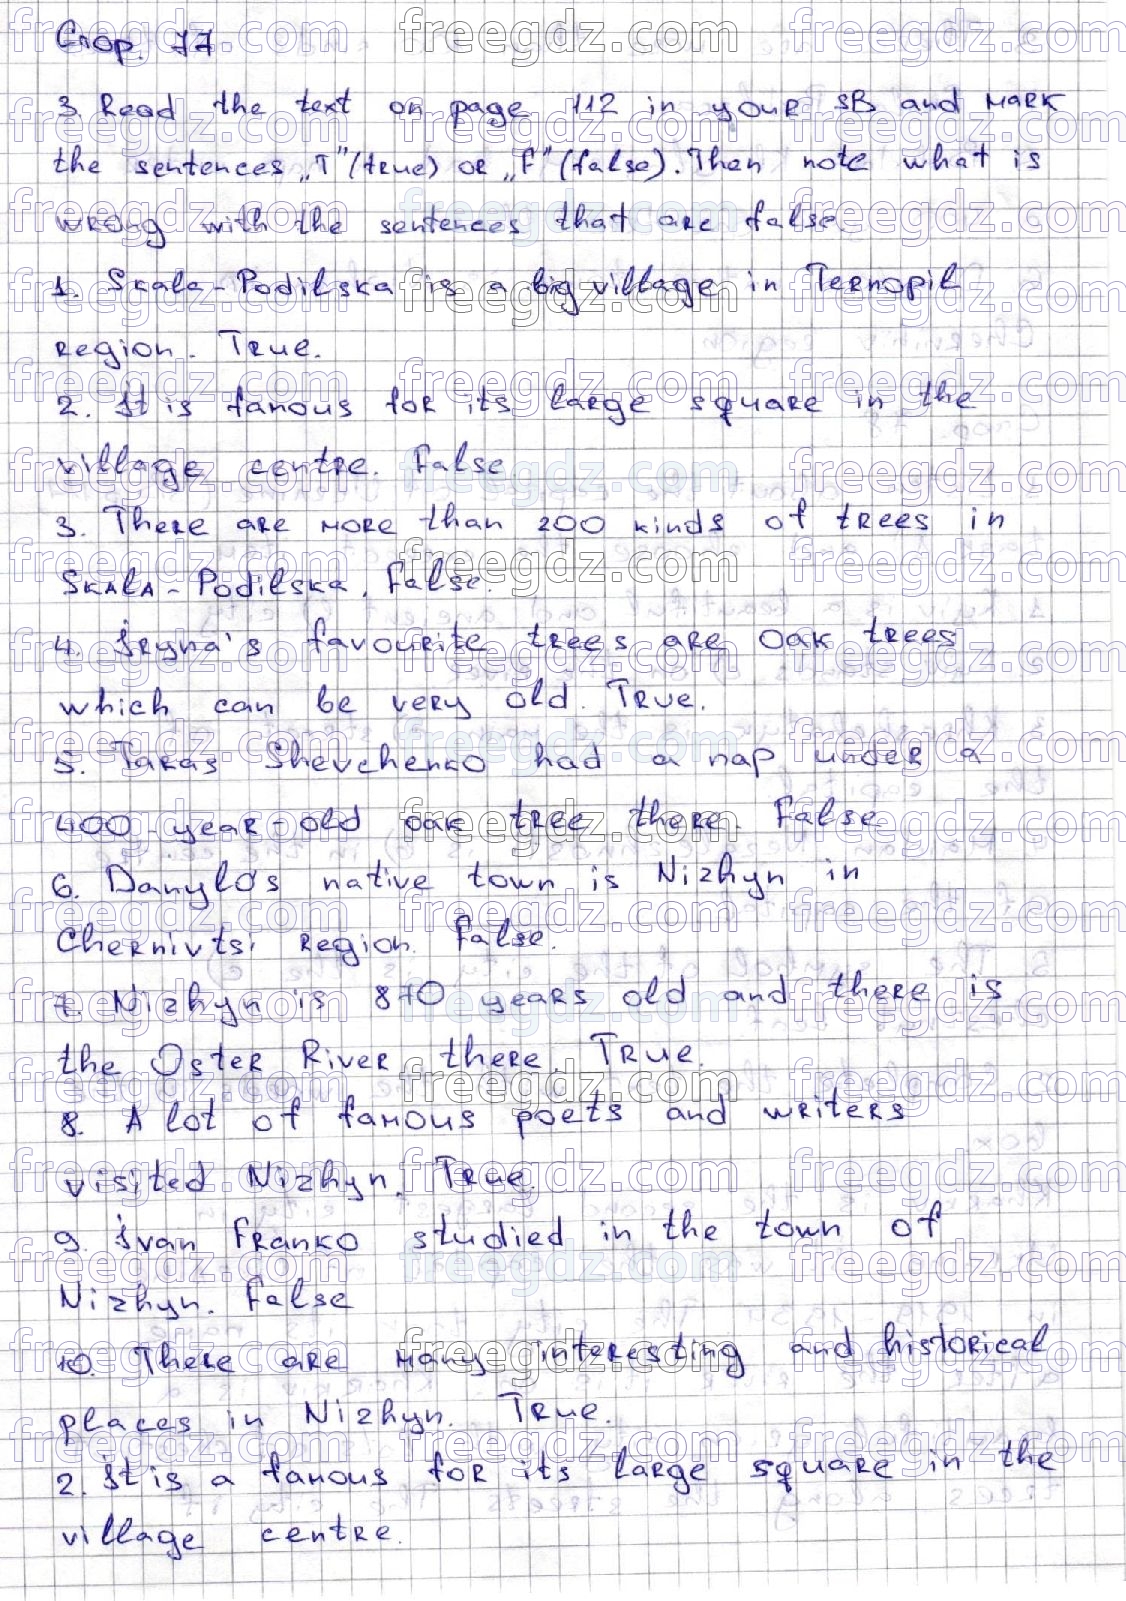 Стор. 77
3. Read the text on page 112 in your SB and mark
the sentences „T" (true) or „F" (false). Then note what is
wrong with the sentences that are false.
1. Skala-Podilska is a big village in Ternopil
region. True.
2. It is famous for its large square in the
village centre. False
3. There are more than 200 kinds of trees in
Skala-Podilska. False.
4. Iryna's favourite trees are oak trees
which can be very old. True.
5. Taras Shevchenko had a nap under a
400-year-old oak tree there. False
6. Danylo's native town is Nizhyn in
Chernivtsi region. False.
7. Nizhyn is 870 years old and there is
the Oster River there. True.
8. A lot of famous poets and writers
visited Nizhyn. True.
9. Ivan Franko studied in the town of
Nizhyn. False
10. There are many interesting and historical
places in Nizhyn. True.
2. It is a famous for its large square in the
village centre.